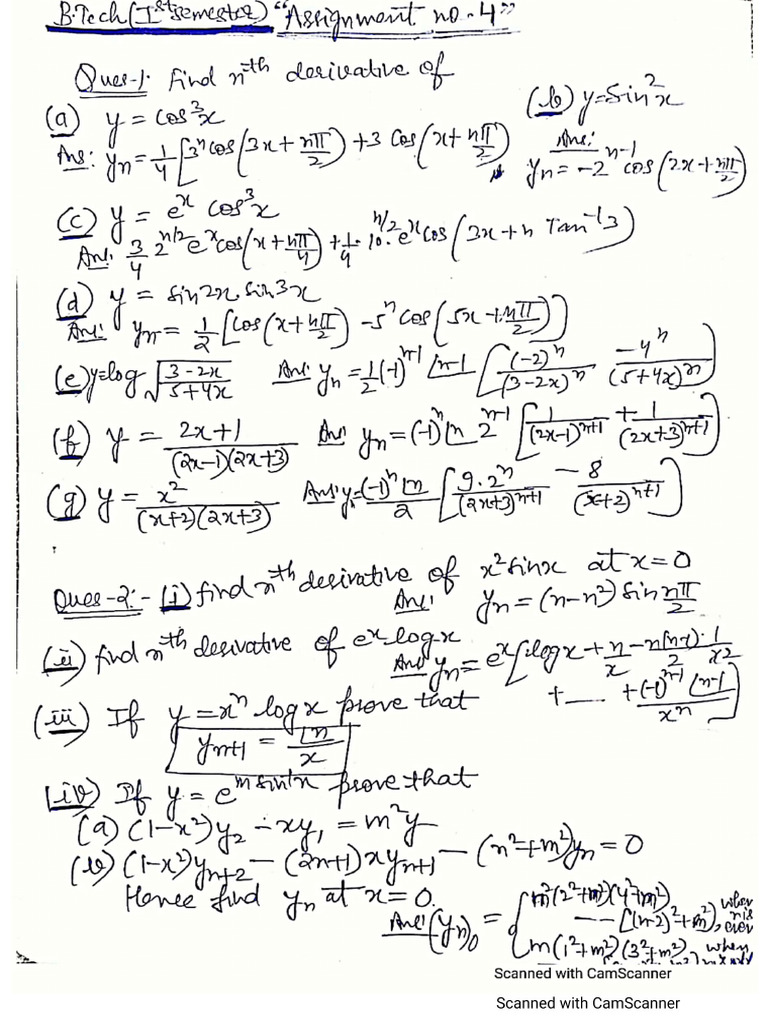 B.Tech (Ist semester) "Assignment no-4"
Ques-1. Find nth derivative of
(a) y = cos³x
(b) y = Sin²x
Ans: yn = 1/4 [3ⁿ cos(3x + nπ/2) + 3 Cos(x + nπ/2)]
Ans: yn = -2ⁿ⁻¹ cos(2x + nπ/2)
(c) y = eˣ cos³x
Ans: 3/4 2^(n/2) eˣ cos(x + nπ/4) + 1/4 · 10^(n/2) · eˣ cos(3x + n Tan⁻¹3)
(d) y = sin2x. sin3x
Ans: yn = 1/2 [cos(x + nπ/2) - 5ⁿ cos(5x + nπ/2)]
(e) y = log √((3-2x)/(5+4x)) Ans: yn = 1/2 (-1)ⁿ⁻¹ ⌊n-1 [(-2)ⁿ/(3-2x)ⁿ - 4ⁿ/(5+4x)ⁿ]
(f) y = (2x+1)/((2x-1)(2x+3)) Ans: yn = (-1)ⁿ ⌊n 2ⁿ⁻¹ [1/(2x-1)ⁿ⁺¹ + 1/(2x+3)ⁿ⁺¹]
(g) y = x²/((x+2)(2x+3)) Ans: yn = (-1)ⁿ ⌊n/2 [9·2ⁿ/(2x+3)ⁿ⁺¹ - 8/(x+2)ⁿ⁺¹]
Ques-2:- (i) find nth derivative of x² sinx at x=0
Ans: yn = (n-n²) Sin nπ/2
(ii) find nth derivative of eˣ log x
Ans: yn = eˣ [log x + n/x - n(n-1)/2 · 1/x²
+ ---- + (-1)ⁿ⁻¹ ⌊n-1/xⁿ]
(iii) If y = xⁿ log x prove that
yn+1 = ⌊n/x
(iv) If y = e^(m sin⁻¹x) prove that
(a) (1-x²)y₂ - xy₁ = m²y
(b) (1-x²)yn+2 - (2n+1)xyn+1 - (n²+m²)yn = 0
Hence find yn at x=0.
Ans: (yn)₀ = { m²(2²+m²)(4²+m²)
---- [(n-2)²+m²], when n is even
m(1²+m²)(3²+m²) when
Scanned with CamScanner
Scanned with CamScanner